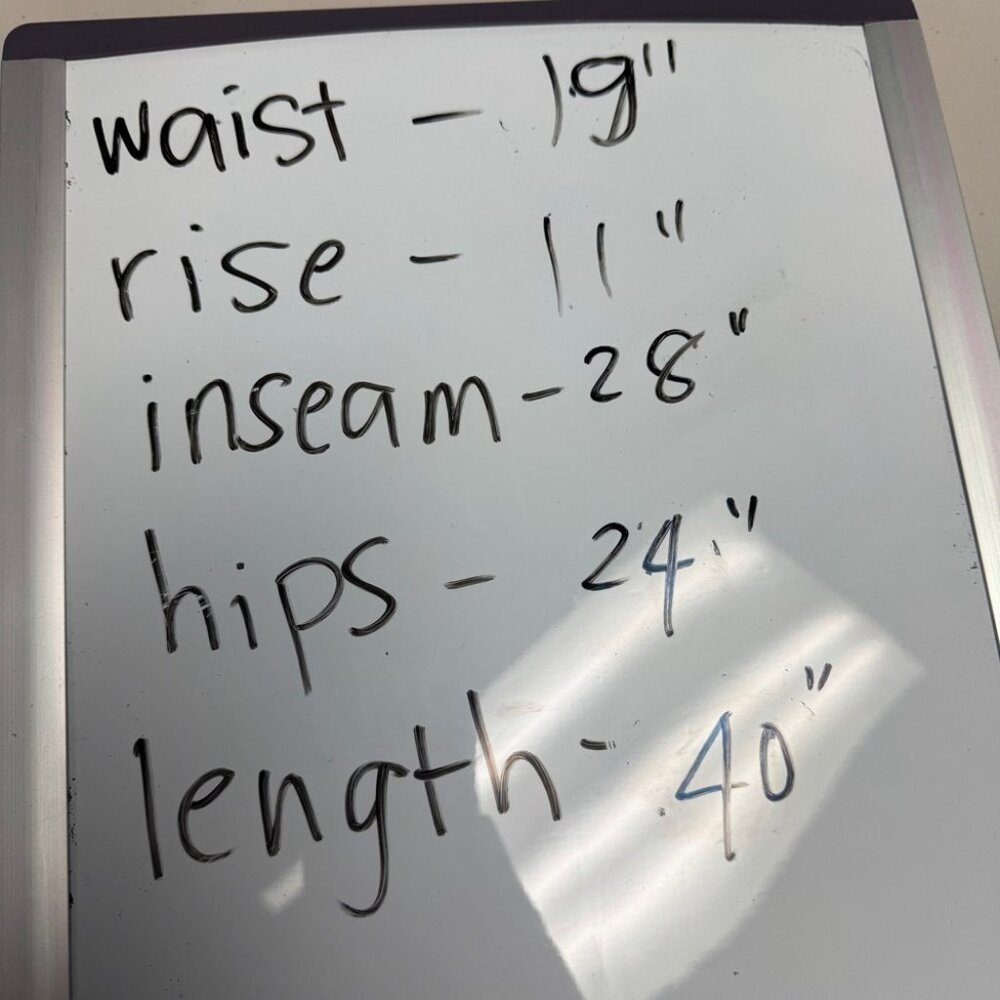 waist - 19"
rise - 11"
inseam - 28"
hips - 24"
length - 40"